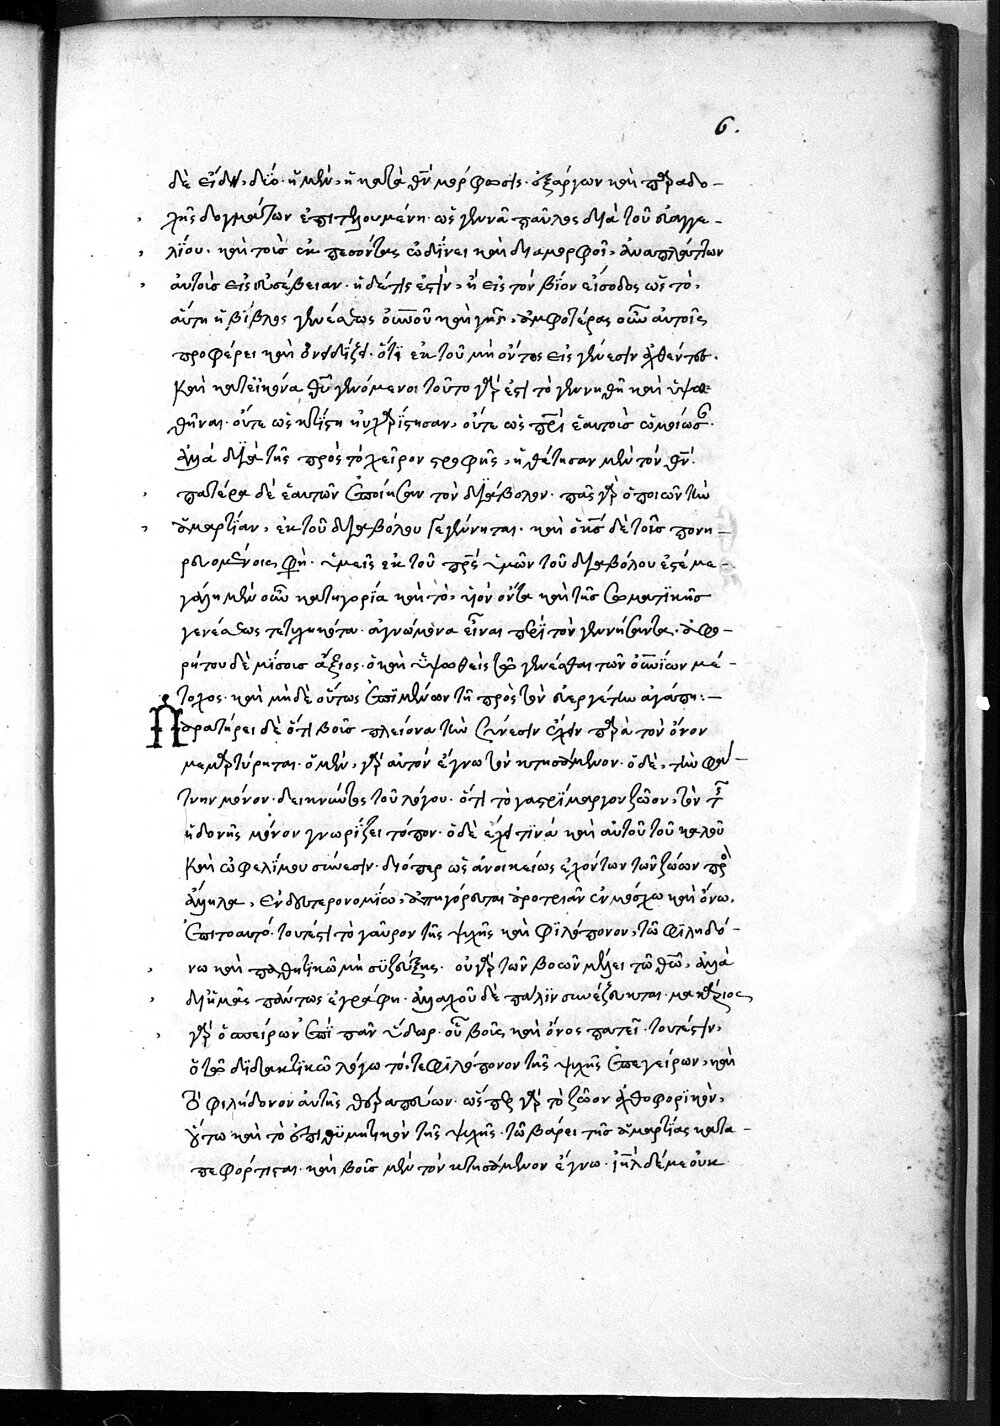 6.
δὲ εἴδη, δύο· ἡ μὲν, ἡ κατὰ θν μόρφωσις· ἐξ ἔργων καὶ παραδο-
χῆς δογμάτων ἐπιτελουμένη· ὡς γεννᾶ παῦλος διὰ τοῦ εὐαγγε-
λίου· καὶ τοὺς ἐκπεσόντας ὠδίνει καὶ διαμορφοῖ, ἀναπλάττων
αὐτοὺς εἰς εὐσέβειαν· ἡ δέ τίς ἐστιν, ἡ εἰς τὸν βίον εἴσοδος ὡς τὸ,
αὕτη ἡ βίβλος γενέσεως οὐνοῦ καὶ γῆς, ἀμφοτέρας οὖν αὐτοῖς
προφέρει καὶ ὀνειδίζει· ὅτι ἐκ τοῦ μὴ ὄντος εἰς γένεσιν ἀχθέντες·
καὶ κατ εἰκόνα θυ γενόμενοι τοῦτο γάρ ἐστι τὸ γεννηθῆναι καὶ ὑψω-
θῆναι· οὔτε ὡς κτίστη ηὐχαρίστησαν, οὔτε ὡς πρι ἑαυτοὺς ὡμοίωσαν·
ἀλλὰ διὰ τῆς πρὸς τὸ χεῖρον στροφῆς, ἠθέτησαν μὲν τὸν θν·
πατέρα δὲ ἑαυτῶν ἐποίησαν τὸν διάβολον· πᾶς γὰρ ὁ ποιῶν τὴν
ἁμαρτίαν, ἐκ τοῦ διαβόλου γεγέννηται· καὶ ὁ κς δὲ τοῖς πονη-
ρευομένοις φη· ὑμεῖς ἐκ τοῦ πρς ὑμῶν τοῦ διαβόλου ἐστέ με-
γάλη μὲν οὖν κατηγορία καὶ τὸ, υἱὸν ὄντα καὶ τῆς σωματικῆς
γενέσεως τετυχηκότα· ἀγνώμονα εἶναι περὶ τὸν γεννήσαντα· ἀφο-
ρήτου δὲ μίσους ἄξιος· ὁ καὶ ὑψωθεὶς τῶ γενέσθαι τῶν οὐνίων μέ-
τοχος· καὶ μηδὲ οὕτως ἐπιμένων τῆ πρὸς τὸν εὐεργέτην ἀγάπη:-
Παρατήρει δὲ ὅτι βοῦς πλείονα τὴν σύνεσιν ἔχειν παρὰ τὸν ὄνον
μεμαρτύρηται· ὁ μὲν, γὰρ αὐτὸν ἔγνω τὸν κτησάμενον· ὁ δὲ, τὴν φάτ-
νην μόνον· δεικνύντος τοῦ λόγου· ὅτι τὸ γαστρίμαργον ζῶον, τὸν τῆς
ἡδονῆς μόνον γνωρίζει τόπον· ὁ δὲ ἔχει τινὰ καὶ αὐτοῦ τοῦ καλοῦ
καὶ ὠφελίμου σύνεσιν· διόπερ ὡς ἀνοικείως ἐχόντων τῶν ζώων πρὸς
ἄλληλα, ἐν δευτερονομίω, ἀπηγόρευται ἀροτριᾶν ἐν μόσχω καὶ ὄνω,
ἐπιτοαυτό· τουτέστι τὸ γαῦρον τῆς ψυχῆς καὶ φιλόπονον, τῶ φιληδό-
νω καὶ παθητικῶ μὴ συζεύξῃς· οὐ γὰρ τῶν βοῶν μέλει τῶ θῶ, ἀλλὰ
δι ἡμᾶς πάντως ἐγράφη· ἀλλαχοῦ δὲ πάλιν συνέζευκται· μακάριος
γὰρ ὁ σπείρων ἐπὶ πᾶν ὕδωρ· οὗ βοῦς καὶ ὄνος πατεῖ· τουτέστιν,
ὁ τῶ διδακτικῶ λόγω τό, τε φιλόπονον τῆς ψυχῆς ἐπεγείρων, καὶ
τὸ φιλήδονον αὐτῆς θεραπεύων· ὥσπερ γὰρ τὸ ζῶον ἀχθοφορικὸν,
οὕτω καὶ τὸ ἐπιθυμητικὸν τῆς ψυχῆς· τῶ βάρει τῆς ἁμαρτίας κατα-
πεφόρτισται· καὶ βοῦς μὲν τὸν κτησάμενον ἔγνω· ιηλ δέ με οὐκ